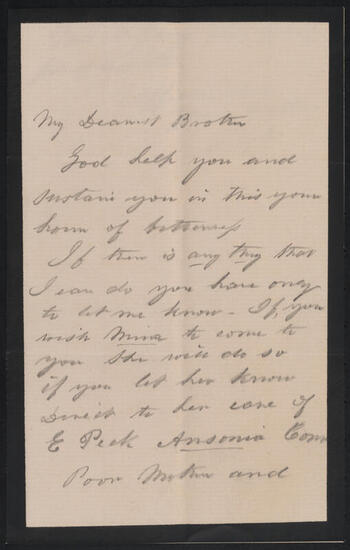 My Dearest Brother
God help you and
sustain you in this your
hour of bitterness
If there is any thing that
I can do you have only
to let me know - If, you
wish Mina to come to
you she will do so
if you let her know
Direct to her care of
E Peck Ansonia Conn
Poor Mother and